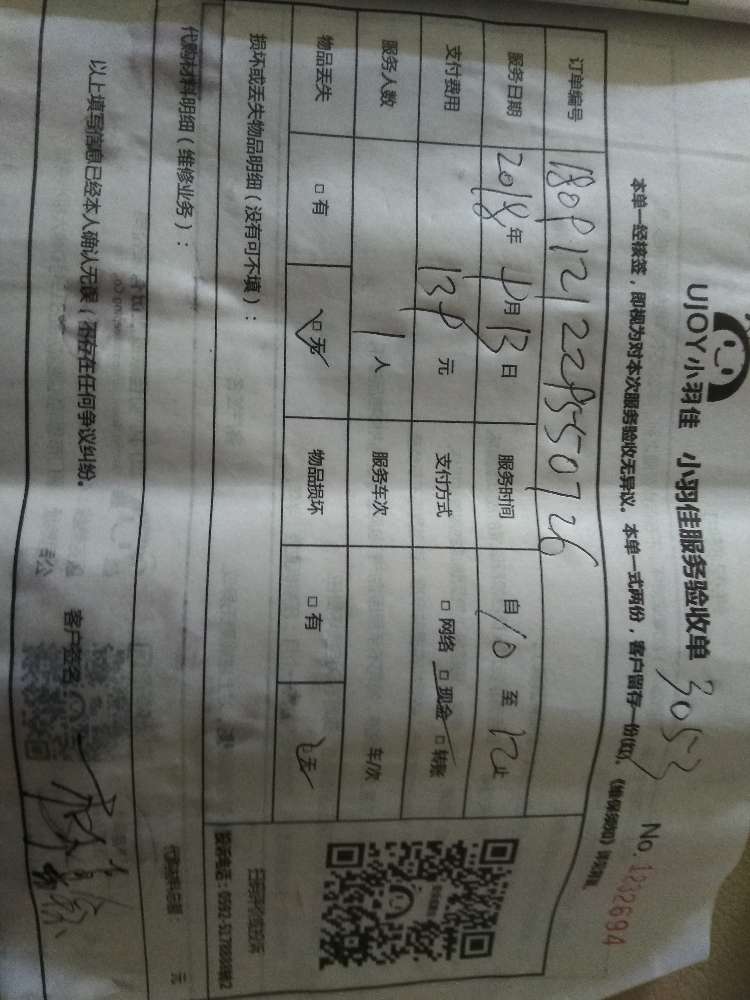 UJOY小羽佳 小羽佳服务验收单 3053
No. 1832694
本单一经接签，即视为对本次服务验收无异议。本单一式两份，客户留存一份(红)。
订单编号
服务日期 2018年 月13日 服务时间 自10至12止
支付费用 元 支付方式 □网络 □现金 □转账
服务人数 1人 服务车次 车/次
物品丢失 □有 □无 物品损坏 □有 □无
损坏或丢失物品明细（没有可不填）：
扫码评价或投诉
代购材料明细（维修业务）：
代购材料总额： 元
以上填写信息已经本人确认无误（不存在任何争议纠纷。 客户签名：